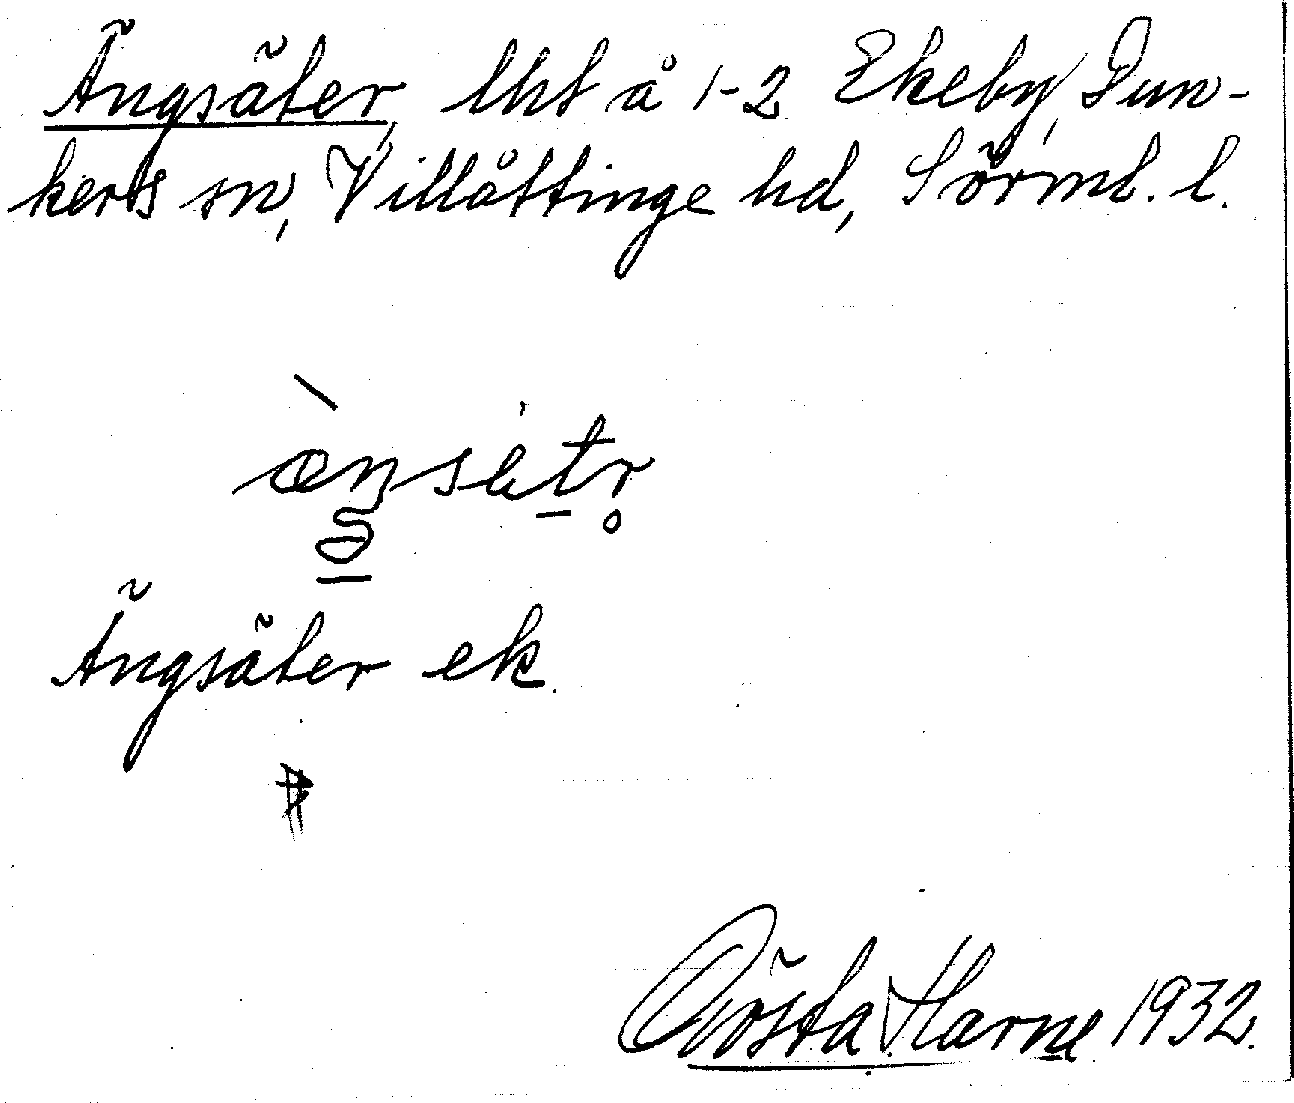 Ängsäter, lht å 1-2 Ekeby, Dun-
kers sn, Villåttinge hd, Sörml. l.
Ängsäter ek.
Gösta Harne 1932.